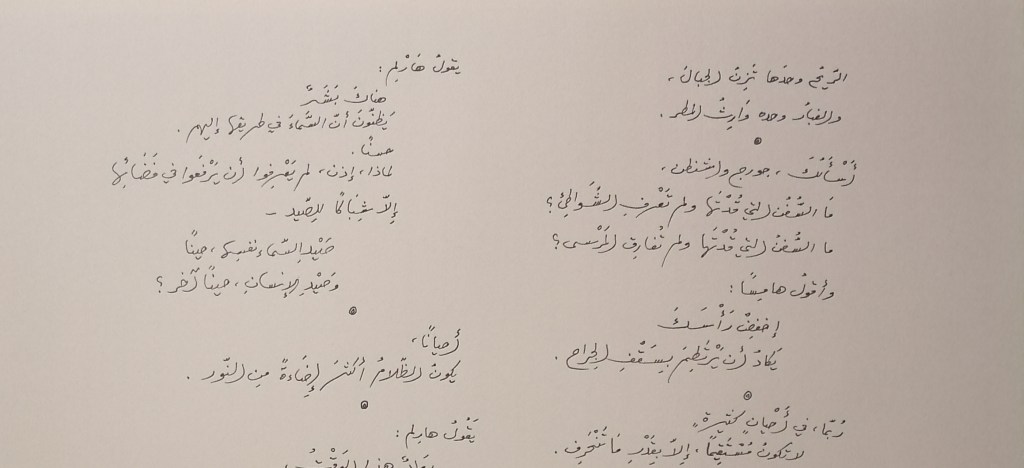 الرّيحُ وحدَها تَزِنُ الجبالَ،
والغبارُ وحده وَارِثُ المطر.
أَسْأَلُكَ، جورج واشنطن،
مَا السُّفُنُ التي قُدْتَها ولم تَعْرفِ الشَّوَاطئَ؟
ما السُّفنُ التي قُدْتَها ولم تُفارقِ المَرْسى؟
وأقولُ هامِسًا:
إخفضْ رَأْسَكَ
يَكادُ أن يَرْتَطِمَ بِسَقْفِ الجراح.
رُبّما، في أَحْيانٍ كثيرةٍ
لا تكونُ مُسْتَقِيمًا، إلاّ بِقَدْرِ مَا تَنْحَرِف.
يقولُ هَارْلِم:
هناكَ بَشَرٌ
يَظنّونَ أنّ السَّماءَ في طريقها إليهم.
حسنًا.
لماذا، إذن، لم يَعْرِفوا أن يَرْفَعوا في فَضَائِها
إلاّ شِبَاكًا لِلصّيد –
صَيْدِ السّماء نفسِها، حينًا
وصَيْدِ الإنسانِ، حينًا آخر؟
أحيانًا،
يكونُ الظّلامُ أكثرَ إضاءةً مِن النّور.
يَقُولُ هارلم: